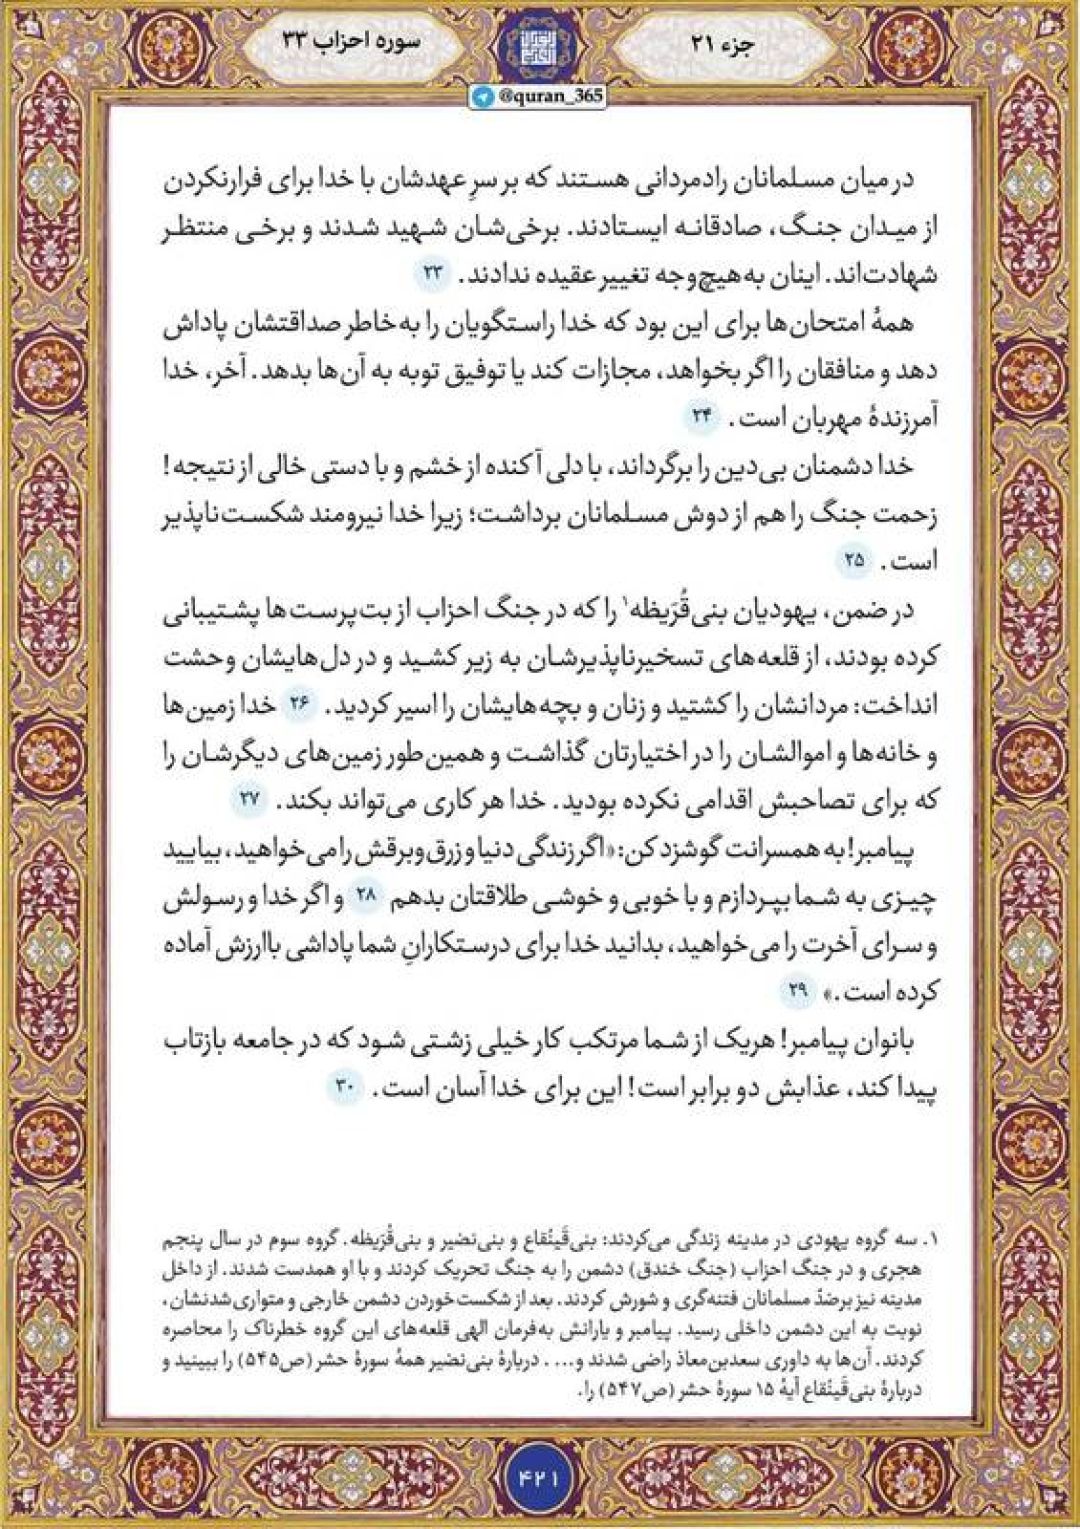 جزء ۲۱
سوره احزاب ۳۳
@quran_365
در میان مسلمانان رادمردانی هستند که بر سرِ عهدشان با خدا برای فرارنکردن
از میدان جنگ، صادقانه ایستادند. برخی‌شان شهید شدند و برخی منتظر
شهادت‌اند. اینان به‌هیچ‌وجه تغییر عقیده ندادند. ۲۳
همهٔ امتحان‌ها برای این بود که خدا راستگویان را به‌خاطر صداقتشان پاداش
دهد و منافقان را اگر بخواهد، مجازات کند یا توفیق توبه به آن‌ها بدهد. آخر، خدا
آمرزندهٔ مهربان است. ۲۴
خدا دشمنان بی‌دین را برگرداند، با دلی آکنده از خشم و با دستی خالی از نتیجه!
زحمت جنگ را هم از دوش مسلمانان برداشت؛ زیرا خدا نیرومند شکست‌ناپذیر
است. ۲۵
در ضمن، یهودیان بنی‌قُرَیظه۱ را که در جنگ احزاب از بت‌پرست‌ها پشتیبانی
کرده بودند، از قلعه‌های تسخیرناپذیرشان به زیر کشید و در دل‌هایشان وحشت
انداخت: مردانشان را کشتید و زنان و بچه‌هایشان را اسیر کردید. ۲۶ خدا زمین‌ها
و خانه‌ها و اموالشان را در اختیارتان گذاشت و همین‌طور زمین‌های دیگرشان را
که برای تصاحبش اقدامی نکرده بودید. خدا هر کاری می‌تواند بکند. ۲۷
پیامبر! به همسرانت گوشزد کن: «اگر زندگی دنیا و زرق‌وبرقش را می‌خواهید، بیایید
چیزی به شما بپردازم و با خوبی و خوشی طلاقتان بدهم ۲۸ و اگر خدا و رسولش
و سرای آخرت را می‌خواهید، بدانید خدا برای درستکارانِ شما پاداشی باارزش آماده
کرده است.» ۲۹
بانوان پیامبر! هریک از شما مرتکب کار خیلی زشتی شود که در جامعه بازتاب
پیدا کند، عذابش دو برابر است! این برای خدا آسان است. ۳۰
۱. سه گروه یهودی در مدینه زندگی می‌کردند: بنی‌قَینُقاع و بنی‌نضیر و بنی‌قُرَیظه. گروه سوم در سال پنجم
هجری و در جنگ احزاب (جنگ خندق) دشمن را به جنگ تحریک کردند و با او همدست شدند. از داخل
مدینه نیز برضدّ مسلمانان فتنه‌گری و شورش کردند. بعد از شکست‌خوردن دشمن خارجی و متواری‌شدنشان،
نوبت به این دشمن داخلی رسید. پیامبر و یارانش به‌فرمان الهی قلعه‌های این گروه خطرناک را محاصره
کردند. آن‌ها به داوری سعدبن‌معاذ راضی شدند و.... دربارهٔ بنی‌نضیر همهٔ سورهٔ حشر (ص۵۴۵) را ببینید و
دربارهٔ بنی‌قَینُقاع آیهٔ ۱۵ سورهٔ حشر (ص۵۴۷) را.
۴۲۱